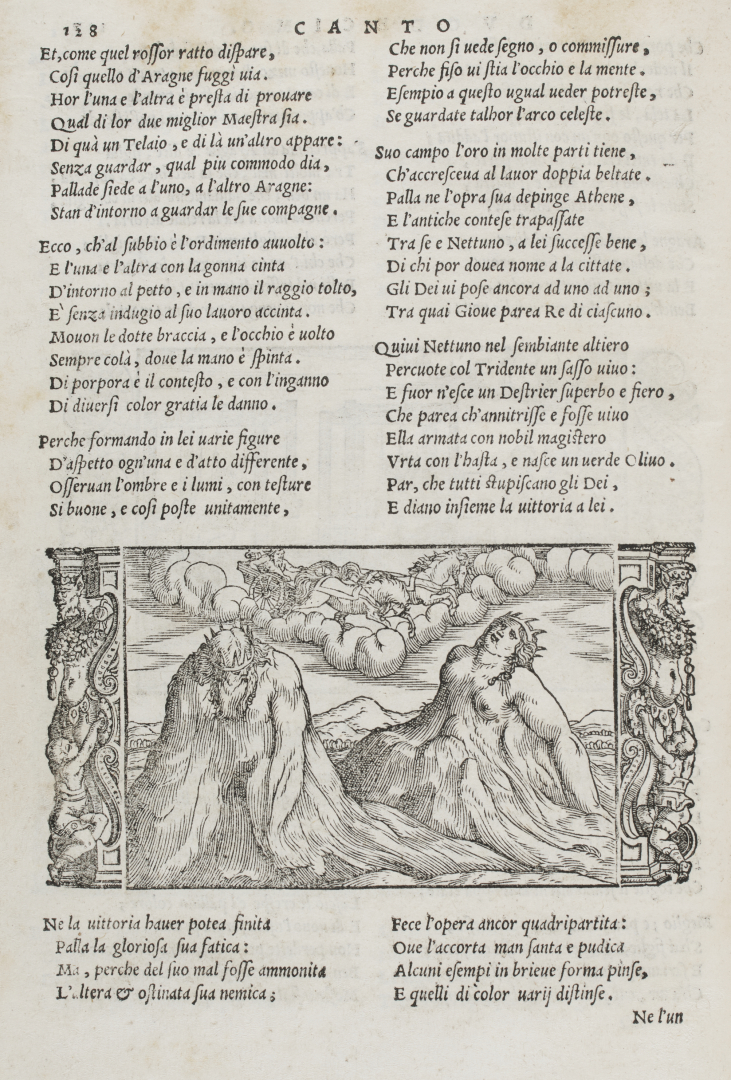 128
CANTO
Et,come quel rossor ratto dispare,
Cosi quello d'Aragne fuggì uia.
Hor l'una e l'altra è presta di prouare
Qual di lor due miglior Maestra sia.
Di quà un Telaio, e di là un'altro appare:
Senza guardar, qual piu commodo dia,
Pallade siede a l'uno, a l'altro Aragne:
Stan d'intorno a guardar le sue compagne.
Ecco, ch'al subbio è l'ordimento auuolto:
E l'una e l'altra con la gonna cinta
D'intorno al petto, e in mano il raggio tolto,
E' senza indugio al suo lauoro accinta.
Mouon le dotte braccia, e l'occhio è uolto
Sempre colà, doue la mano è spinta.
Di porpora è il contesto, e con l'inganno
Di diuersi color gratia le danno.
Perche formando in lei uarie figure
D'aspetto ogn'una e d'atto differente,
Osseruan l'ombre e i lumi, con testure
Si buone, e così poste unitamente,
Che non si uede segno, o commissure,
Perche fiso ui stia l'occhio e la mente.
Esempio a questo ugual ueder potreste,
Se guardate talhor l'arco celeste.
Suo campo l'oro in molte parti tiene,
Ch'accresceua al lauor doppia beltate.
Palla ne l'opra sua depinge Athene,
E l'antiche contese trapassate
Tra se e Nettuno, a lei successe bene,
Di chi por douea nome a la cittate.
Gli Dei ui pose ancora ad uno ad uno;
Tra quai Gioue parea Re di ciascuno.
Quiui Nettuno nel sembiante altiero
Percuote col Tridente un sasso uiuo:
E fuor n'esce un Destrier superbo e fiero,
Che parea ch'annitrisse e fosse uiuo
Ella armata con nobil magistero
Vrta con l'hasta, e nasce un uerde Oliuo.
Par, che tutti stupiscano gli Dei,
E diano insieme la uittoria a lei.
Ne la uittoria hauer potea finita
Palla la gloriosa sua fatica:
Ma, perche del suo mal fosse ammonita
L'altera & ostinata sua nemica;
Fece l'opera ancor quadripartita:
Oue l'accorta man santa e pudica
Alcuni esempi in brieue forma pinse,
E quelli di color uarij distinse.
Ne l'un